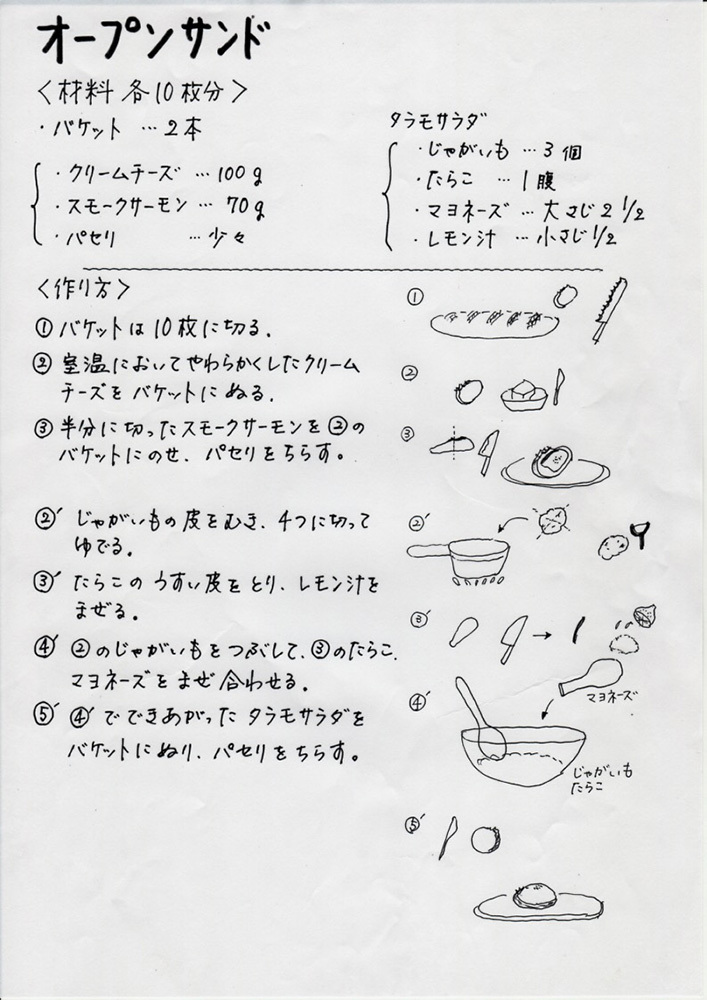 オープンサンド
〈材料 各10枚分〉
・バケット …2本
・クリームチーズ … 100g
・スモークサーモン … 70g
・パセリ …少々
タラモサラダ
・じゃがいも … 3個
・たらこ … 1腹
・マヨネーズ … 大さじ2 1/2
・レモン汁 … 小さじ1/2
〈作り方〉
① バケットは10枚に切る.
② 室温においてやわらかくしたクリーム
チーズをバケットにぬる.
③ 半分に切ったスモークサーモンを②の
バケットにのせ、パセリをちらす。
②′ じゃがいもの皮をむき、4つに切って
ゆでる.
③′ たらこのうすい皮をとり、レモン汁を
まぜる.
④′ ②のじゃがいもをつぶして、③のたらこ、
マヨネーズをまぜ合わせる.
⑤′ ④′でできあがったタラモサラダを
バケットにぬり、パセリをちらす。
①
②
③
②′
③′
④′
マヨネーズ
じゃがいも
たらこ
⑤′